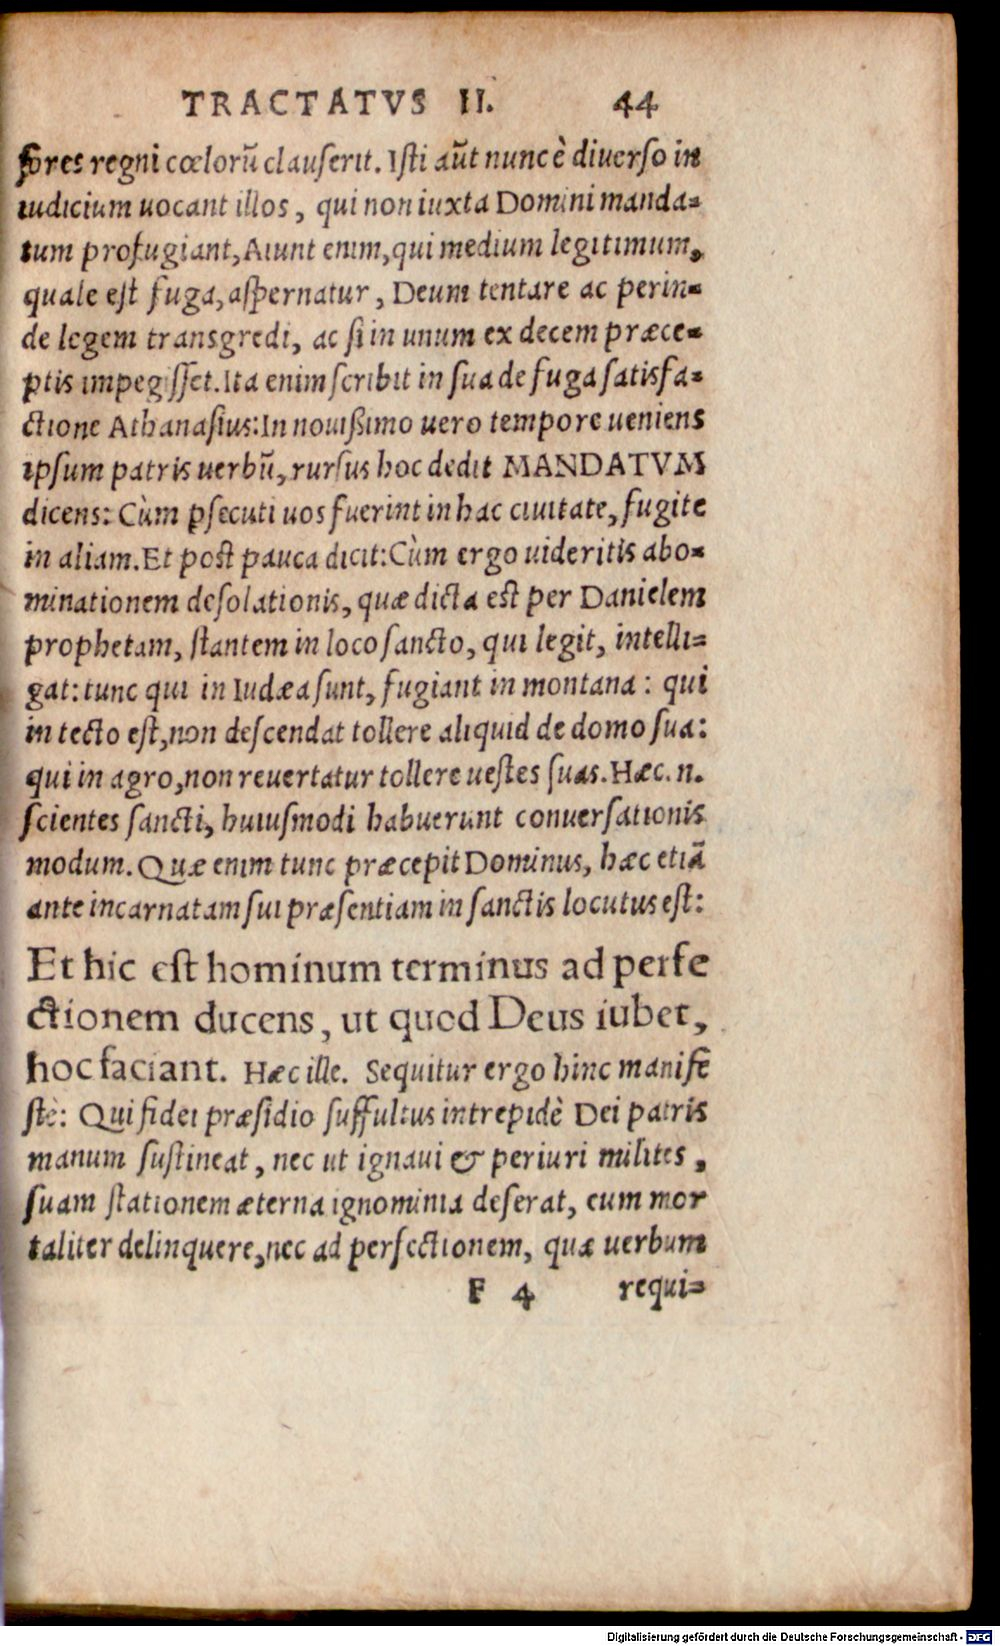 TRACTATVS II. 44
fores regni cœlorũ clauserit. Isti aũt nunc è diuerso in
iudicium uocant illos, qui non iuxta Domini manda-
tum profugiant, Aiunt enim, qui medium legitimum,
quale est fuga, aspernatur, Deum tentare ac perin-
de legem transgredi, ac si in unum ex decem præce-
ptis impegisset. Ita enim scribit in sua de fuga satisfa-
ctione Athanasius: In nouißimo uero tempore ueniens
ipsum patris uerbũ, rursus hoc dedit MANDATVM
dicens: Cùm ꝑsecuti uos fuerint in hac ciuitate, fugite
in aliam. Et post pauca dicit: Cùm ergo uideritis abo-
minationem desolationis, quæ dicta est per Danielem
prophetam, stantem in loco sancto, qui legit, intelli-
gat: tunc qui in Iudæa sunt, fugiant in montana: qui
in tecto est, non descendat tollere aliquid de domo sua:
qui in agro, non reuertatur tollere uestes suas. Hæc. n.
scientes sancti, huiusmodi habuerunt conuersationis
modum. Quæ enim tunc præcepit Dominus, hæc etiã
ante incarnatam sui præsentiam in sanctis locutus est:
Et hic est hominum terminus ad perfe
ctionem ducens, ut quod Deus iubet,
hoc faciant. Hæc ille. Sequitur ergo hinc manife
stè: Qui fidei præsidio suffultus intrepidè Dei patris
manum sustineat, nec ut ignaui & periuri milites,
suam stationem æterna ignominia deserat, eum mor
taliter delinquere, nec ad perfectionem, quæ uerbum
F 4 requi-
Digitalisierung gefördert durch die Deutsche Forschungsgemeinschaft - DFG